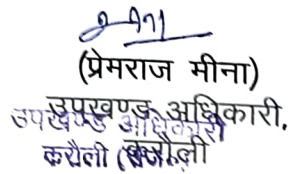 (प्रेमराज मीना)
उपखण्ड अधिकारी,
उपखण्ड अधिकारी
करौली
करौली (राज.)